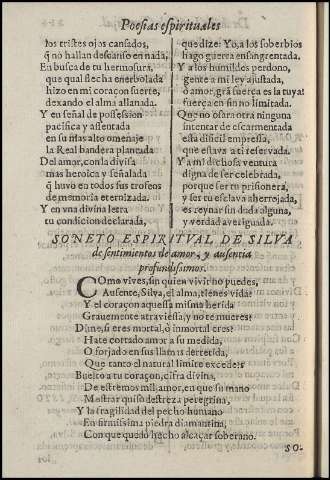 Poesias espirituales
los tristes ojos cansados,
q̃ no hallan descanso en nada,
En busca de tu hermosura,
que qual flecha enerbolada
hizo en mi coraçon suerte,
dexando el alma allanada.
Y en señal de possession
pacifica y assentada
en su mas alto omenaje
la Real bandera plantada
Del amor, con la divisa
mas heroica y señalada
q̃ huvo en todos sus trofeos
de memoria eternizada.
Y en vna divina letra
tu condicion declarada,
que dize: Yo, a los soberbios
hago guerra ensangrentada.
Y a los humildes perdono,
gente a mi ley ajustada,
ò amor, grã fuerça es la tuya!
fuerça en fin no limitada.
Que no osara otra ninguna
intentar de escarmentada
esta dificil empresa,
que estava a ti reservada.
Y a mi dichosa ventura
digna de ser celebrada,
porque ser tu prisionera,
y ser tu esclava aherrojada,
es reynar sin duda alguna,
y verdad averiguada.
SONETO ESPIRITVAL DE SILVA
de sentimientos de amor, y ausencia
profundissimos.
COmo vives, sin quien vivir no puedes,
Ausente, Silva, el alma, tienes vida?
Y el coraçon aquessa misma herida
Gravemente atraviessa, y no te mueres?
Dime, si eres mortal, ò inmortal eres?
Hate cortado amor a su medida,
O forjado en sus llamas derretida,
Que tanto el natural limite excedes?
Buelto a tu coraçon, cifra divina,
De estremos mil, amor, en que su mano
Mostrar quiso destreza peregrina,
Y la fragilidad del pecho humano
En firmissima piedra diamantina,
Con que quedò hecho alcaçar soberano.
SO-